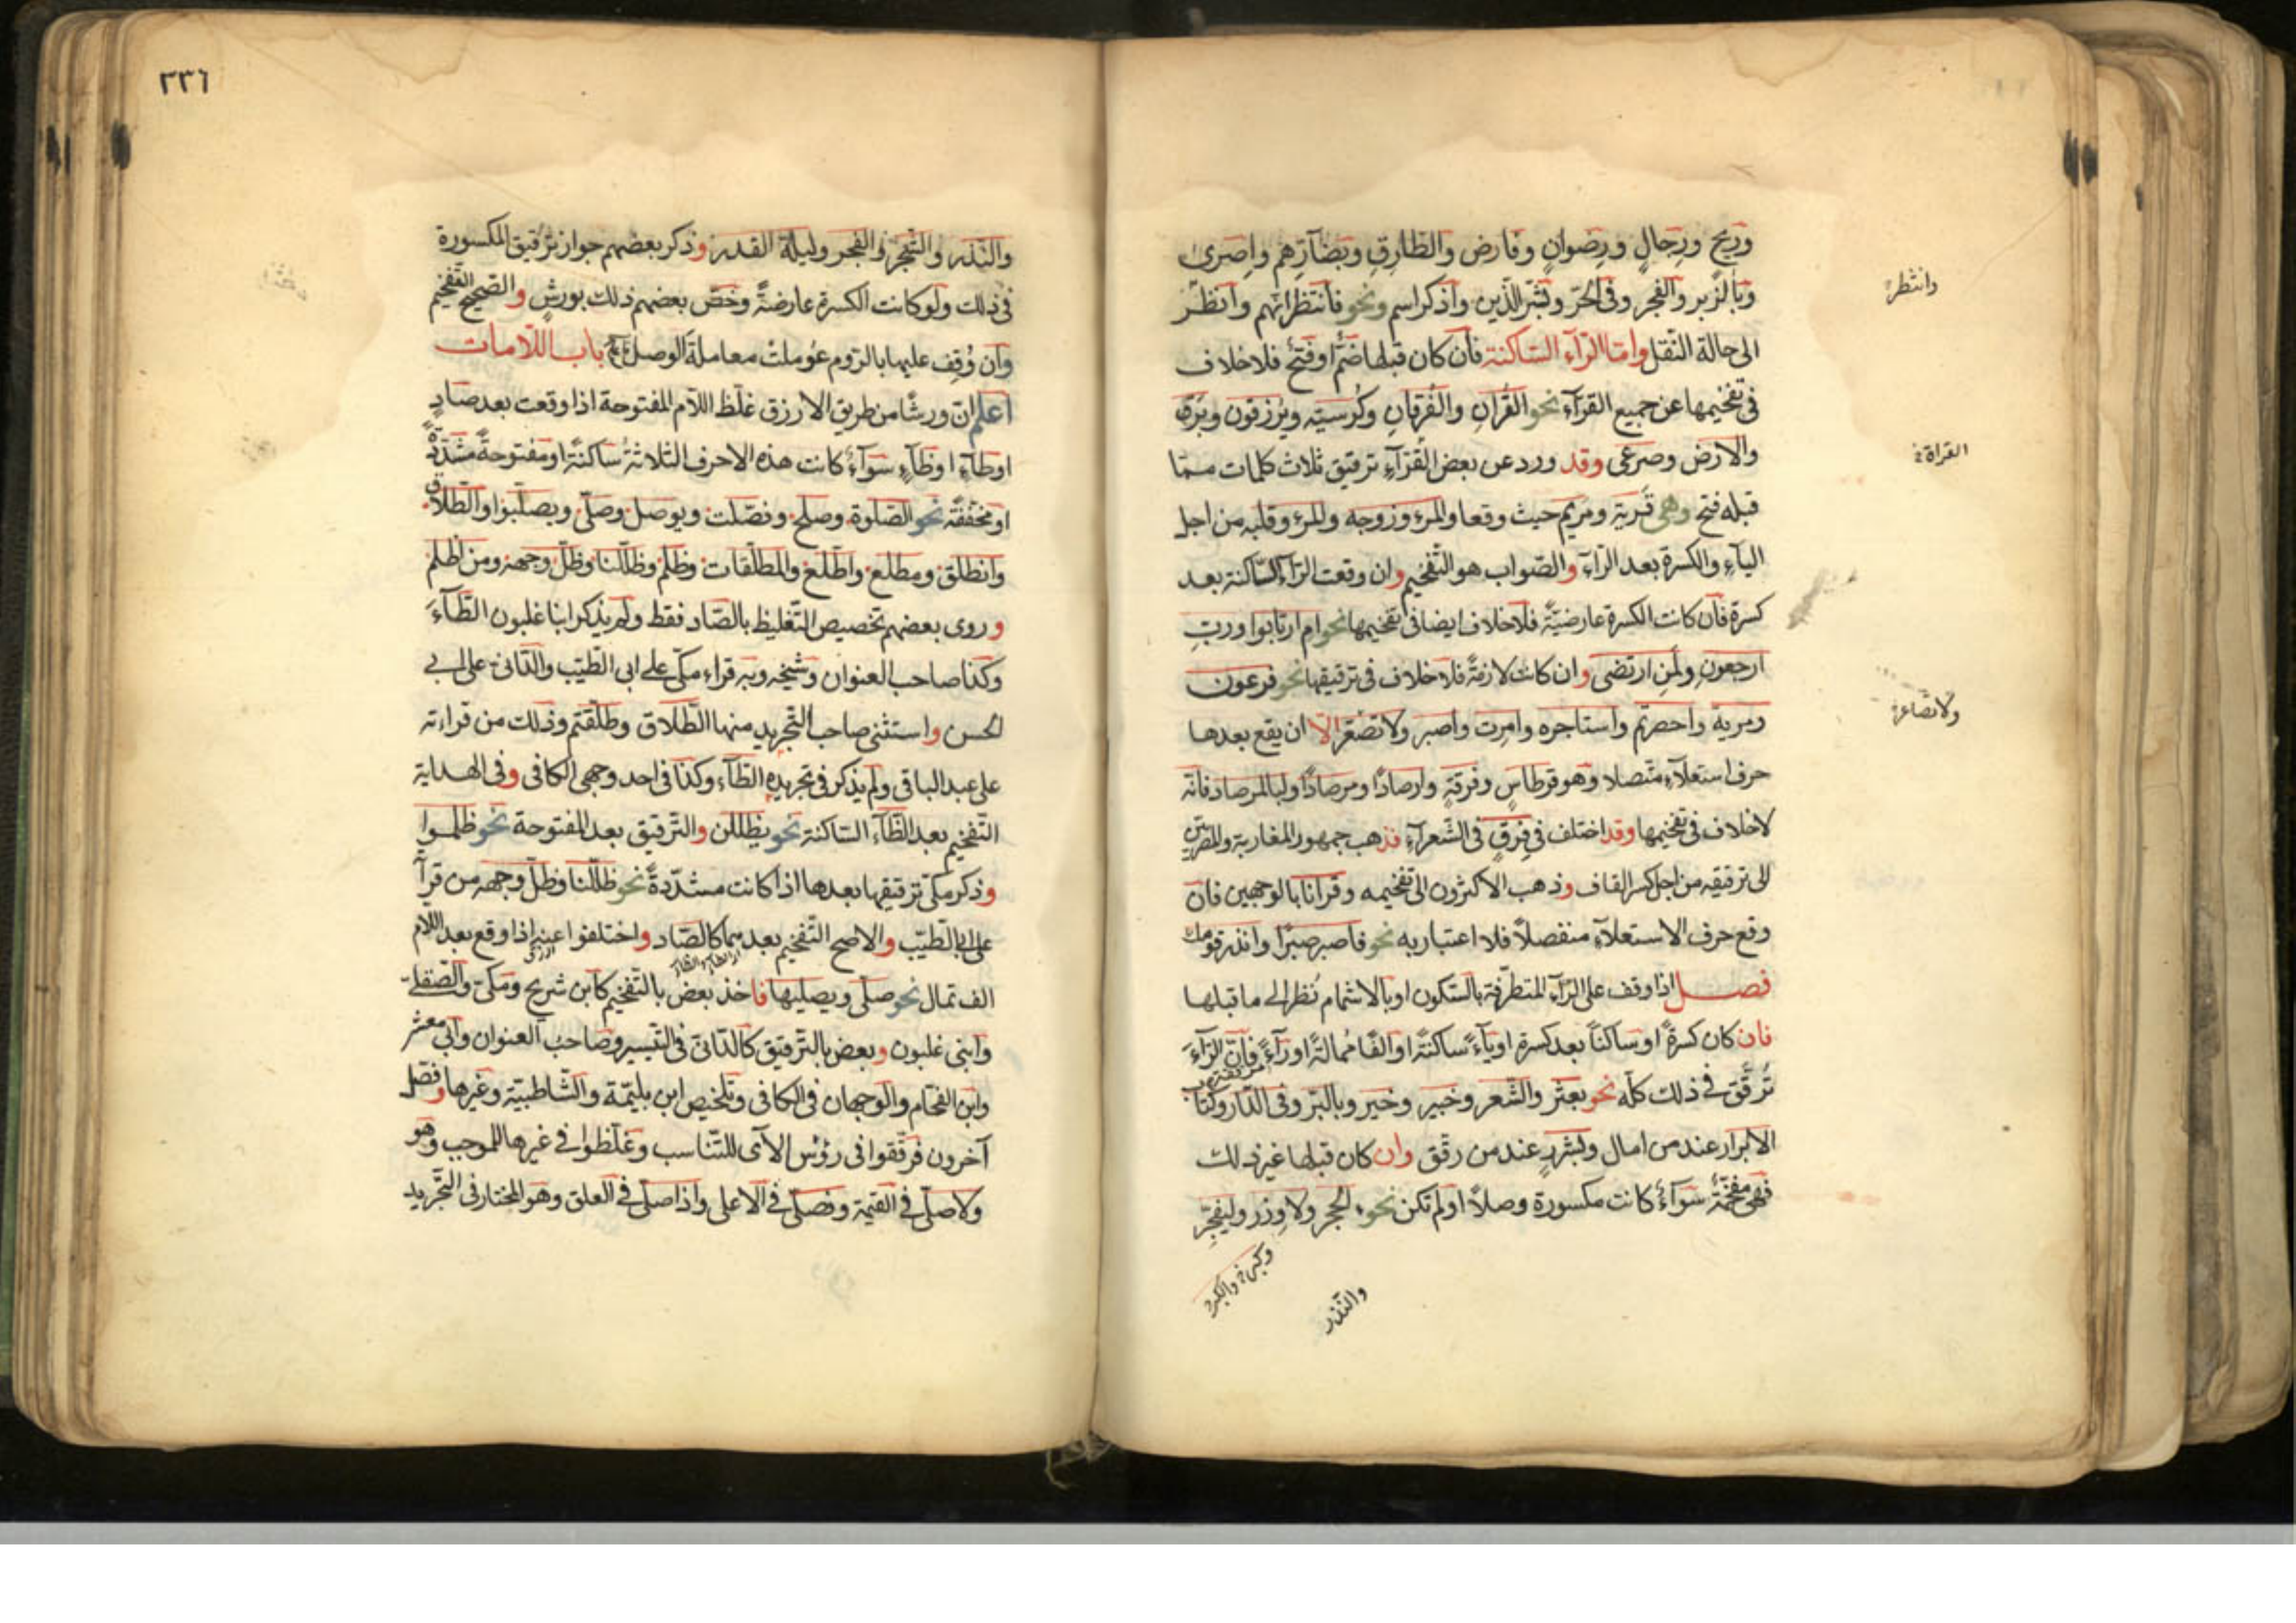 وريح ورجال ورضوان وفارض والطارق وبضآرهم واصرى
وبالزبر والفجر وفى الحر وبشر الذين واذكر اسم ونحو فانتظر انهم وانظر
وانتظر
الى حالة النقل واما الرآء الساكنة فان كان قبلها ضم او فتح فلا خلاف
فى تفخيمها عن جميع القرآء نحو القرآن والفرقان وكرسيه ويرزقون وبرق
والارض وصرعى وقد ورد عن بعض القرآء ترقيق ثلاث كلمات مما
القراة
قبله فتح وهى قرية ومريم حيث وقعا والمرء وزوجه والمرء وقلبه من اجل
اليآء والكسرة بعد الرآء والصواب هو التفخيم وان وقعت الرآء الساكنة بعد
كسرة فان كانت الكسرة عارضيّة فلا خلاف ايضا فى تفخيمها نحو ام ارتابوا ورب
ارجعون ولمن ارتضى وان كانت لازمة فلا خلاف فى ترقيقها نحو فرعون
ومرية واحصرتم واستاجره وامرت واصبر ولا تصعر الا ان يقع بعدها
ولا تصاعر
حرف استعلآء متصلا وهو قرطاس وفرقة وارصادا ومرصادا ولبالمرصاد فانه
لا خلاف فى تفخيمها وقد اختلف فى فرق فى الشعرآء فذهب جمهور المغاربة والمصريين
الى ترقيقه من اجل كسر القاف وذهب الاكثرون الى تفخيمه وقرانا بالوجهين فان
وقع حرف الاستعلآء منفصلاً فلا اعتبار به نحو فاصبر صبرا وانذر قومك
فصل اذا وقف على الرآء المتطرفة بالسكون او بالاشمام نُظر الى ما قبلها
فان كان كسرةً او ساكناً بعد كسرة او يآءً ساكنةً او الفًا مُمالةً او رآءً مرققة فانّ الرآءَ
تُرقّق فى ذلك كله نحو بعثر والشعر وخبير وخير وبالبر وفى الدار وكتاب
الابرار عند من امال وبشرر عند من رقق وان كان قبلها غير ذلك
فهى مفخمة سوآء كانت مكسورة وصلاً او لم تكن نحو الحجر ولا وزر وليفجر
وكبر والكبر
والنذر
٢٣٦
والنذر والشجر والفجر وليلة القدر وذكر بعضهم جواز ترقيق المكسورة
فى ذلك ولو كانت الكسرة عارضةً وخصّ بعضهم ذلك بورش والصحيح التفخيم
وان وُقِف عليها بالروم عوملت معاملة الوصل باب اللامات
اعلم ان ورشًا من طريق الازرق غلظ اللام المفتوحة اذا وقعت بعد صادٍ
او طآءٍ او ظآءٍ سوآءً كانت هذه الاحرف الثلاثة ساكنةً او مفتوحةً مشدّدةً
او مخففةً نحو الصلوة وصلح وفصلت ويوصل وصلّى ويصلبوا والطلاق
وانطلق ومطلع واطلع والمطلقات وظلم وظللنا وظلّ وجهه ومن اظلم
وروى بعضهم تخصيص التغليظ بالصاد فقط ولم يذكر ابنا غلبون الظآءَ
وكذا صاحب العنوان وشيخه وبه قراء مكّى على ابى الطيب والدانى على ابى
الحسن واستثنى صاحب التجريد منها الطلاق وطلقتم وذلك من قراءته
على عبد الباقى ولم يذكر فى تجريده الظآء وكذا فى احد وجهى الكافى وفى الهداية
التفخيم بعد الظآء الساكنة نحو يظللن والترقيق بعد المفتوحة نحو ظلموا
وذكر مكى ترقيقها بعدها اذا كانت مشدّدةً نحو ظللنا وظلّ وجهه من قرآ
على ابى الطيّب والاصح التفخيم بعدهما كالصاد واختلفوا عنه اذا وقع بعد اللام
الف تمال نحو صلّى ويصليها فاخذ بعض بالتفخيم كابن شريح ومكى والصقلى
وابنى غلبون وبعض بالترقيق كالدانى فى التيسير وصاحب العنوان وابى معشر
وابن الفحام والوجهان فى الكافى وتلخيص ابن بليّمة والشاطبية وغيرها وفصل
آخرون فرققوا فى رؤس الآى للتناسب وغلظوا فى غيرها للموجب وهو
ولا صلى فى القيمة وفصلى فى الاعلى واذا صلى فى العلق وهو المختار فى التجريد